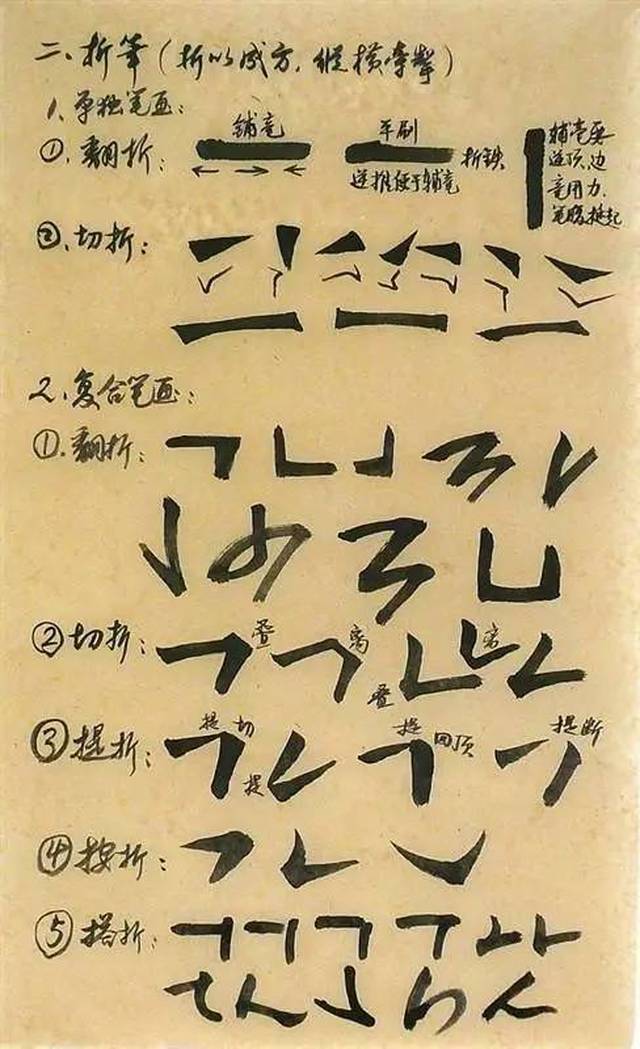 二、折笔（折以成方，纵横牵掣）
1、单独笔画：
①、翻折：
铺毫
平刷
折铁
逆推便于辅毫
辅毫要
逆顶,边
毫用力,
笔腰挺起
②、切折：
2、复合笔画：
①、翻折：
②切折：
叠
离
叠
离
③提折：
提 切
提
提
回顶
提断
④按折：
⑤搭折：